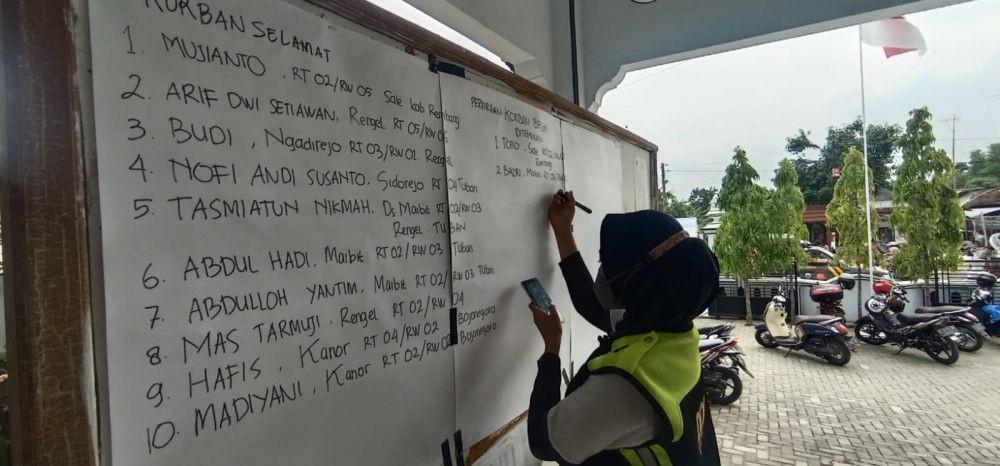 KORBAN SELAMAT
1. MUJIANTO . RT 02/RW 05 Sale kab Rembang
2. ARIF DWI SETIAWAN, Rengel RT 05/RW 06
3. BUDI , Ngadirejo RT 03/RW 01 Rengel
4. NOFI ANDI SUSANTO. Sidorejo RT 04 Tuban
5. TASMIATUN NIKMAH. Ds Maibit RT 02/RW 03
Rengel TUBAN
6. ABDUL HADI. Maibit RT 02/RW 03 Tuban
7. ABDULLOH YANTIM. Maibit RT 02/RW 03 Tuban
8. MAS TARMUJI . Rengel RT 02/RW 04
9. HAFIS , Kanor RT 04/RW 02 Bojonegoro
10. MADIYANI , Kanor RT 02/RW 02 Bojonegoro
KORBAN
DITEMUKAN
1 TORO , Sale RT 02/RW
Rembang
2 . Maibit RT 02/RW